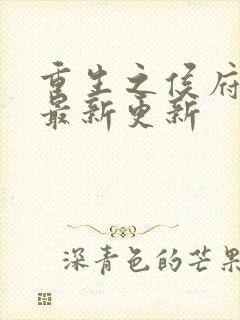 重生之侯府
最新更新
深青色的芒果